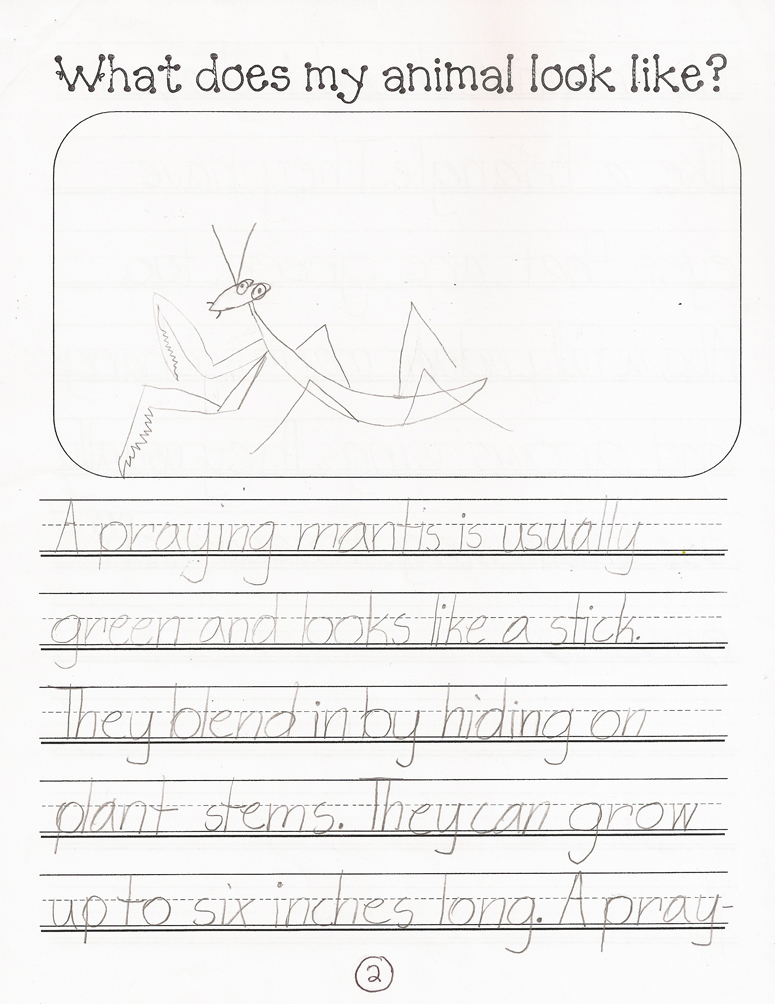 What does my animal look like?
A praying mantis is usually
green and looks like a stick.
They blend in by hiding on
plant stems. They can grow
up to six inches long. A pray-
2